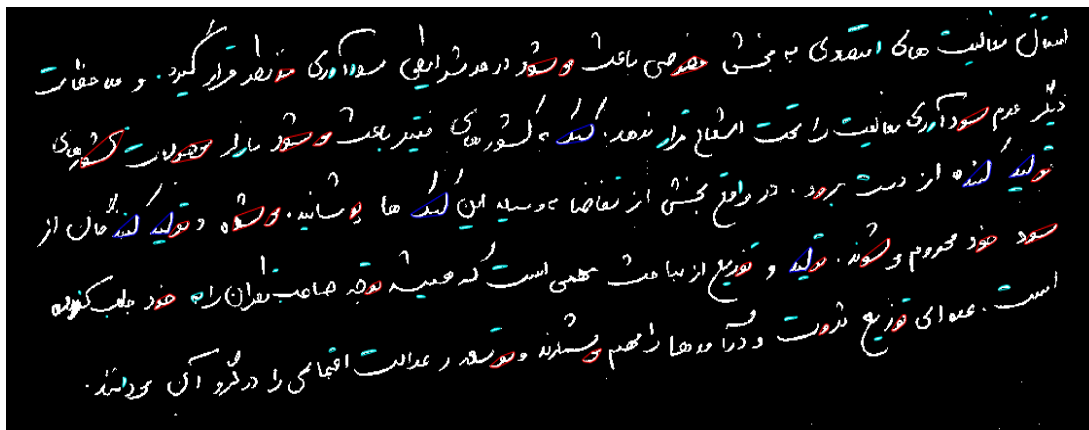 انتقال فعالیت های اقتصادی به بخش خصوصی باعث میشود در هر شرایطی سودآوری مد نظر قرار گیرد. و ملاحظات
دیگر عدم سودآوری فعالیت را تحت الشعاع قرار ندهد. کمک به کشورهای فقیر باعث میشود بازار محصولات کشورهای
تولید کننده از دست برود. در واقع بخشی از تقاضا به وسیله این کمک ها پوشانیده میشده و تولید کنندگان از
سود خود محروم میشوند. تولید و توزیع از مباحث مهمی است که همیشه توجه صاحب نظران را به خود جلب کرده
است. عده ای توزیع ثروت و درآمدها را مهم میشمارند و توسعه و عدالت اجتماعی را در گرو آن میدانند.